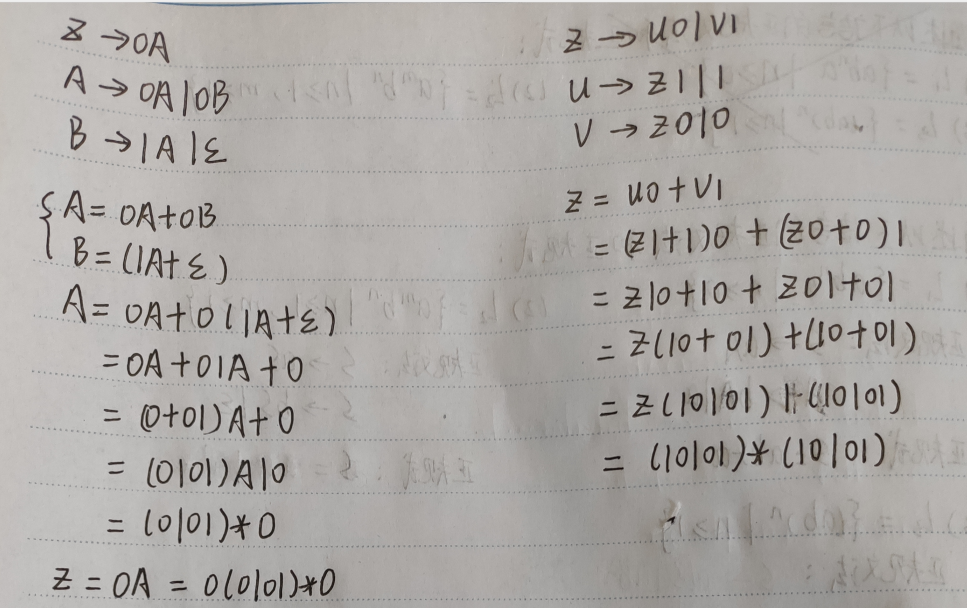 Z → 0A
A → 0A|0B
B → 1A|ε
{ A = 0A+0B
B = (1A+ε)
A = 0A+0(1A+ε)
= 0A+01A+0
= (0+01)A+0
= (0|01)A|0
= (0|01)*0
Z = 0A = 0(0|01)*0
Z → U0|V1
U → Z1|1
V → Z0|0
Z = U0+V1
= (Z1+1)0 + (Z0+0)1
= Z10+10 + Z01+01
= Z(10+01)+(10+01)
= Z(10|01)|(10|01)
= (10|01)*(10|01)